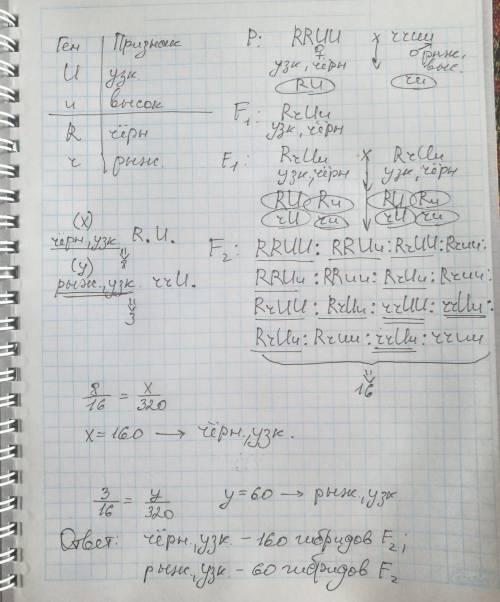 Ген | Признак
U | узк
u | высок
R | чёрн
r | рыж.
P: RRUU x rruu
♀ узк, чёрн
♂ рыж, выс.
RU ru
F1: RrUu
узк, чёрн
F1: RrUu x RrUu
узк, чёрн узк, чёрн
RU Ru RU Ru
rU ru rU ru
(x)
чёрн, узк R.U.
8
(y)
рыж, узк rrU.
3
F2: RRUU: RRUu: RrUU: RrUu:
RRUu: RRuu: RrUu: Rruu:
RrUU: RrUu: rrUU: rrUu:
RrUu: Rruu: rrUu: rruu
16
8/16 = x/320
x=160 → чёрн, узк.
3/16 = y/320 y=60 → рыж, узк
Ответ: чёрн, узк. - 160 гибридов F2;
рыж, узк - 60 гибридов F2